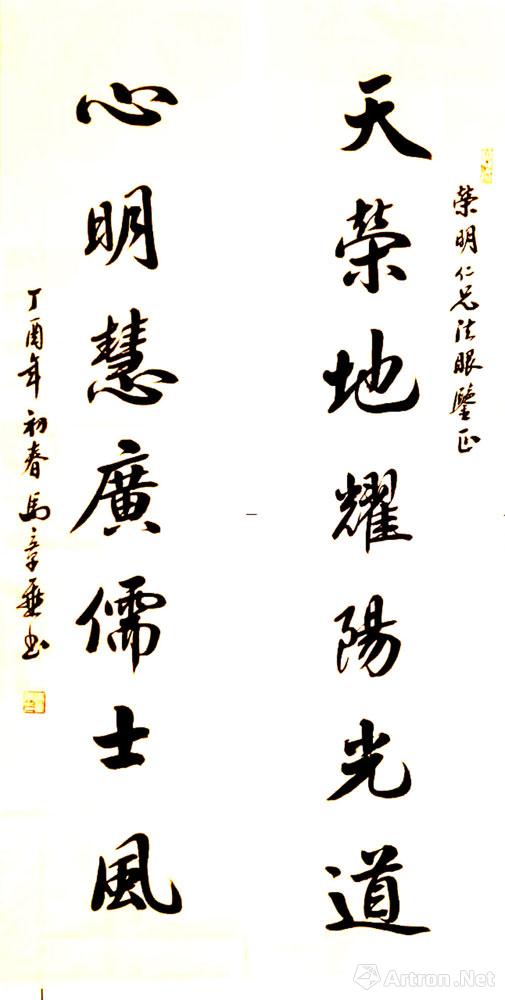 榮明仁兄法眼鑒正
天榮地耀陽光道
心明慧廣儒士風
丁酉年初春馬章乘书
Artron.Net